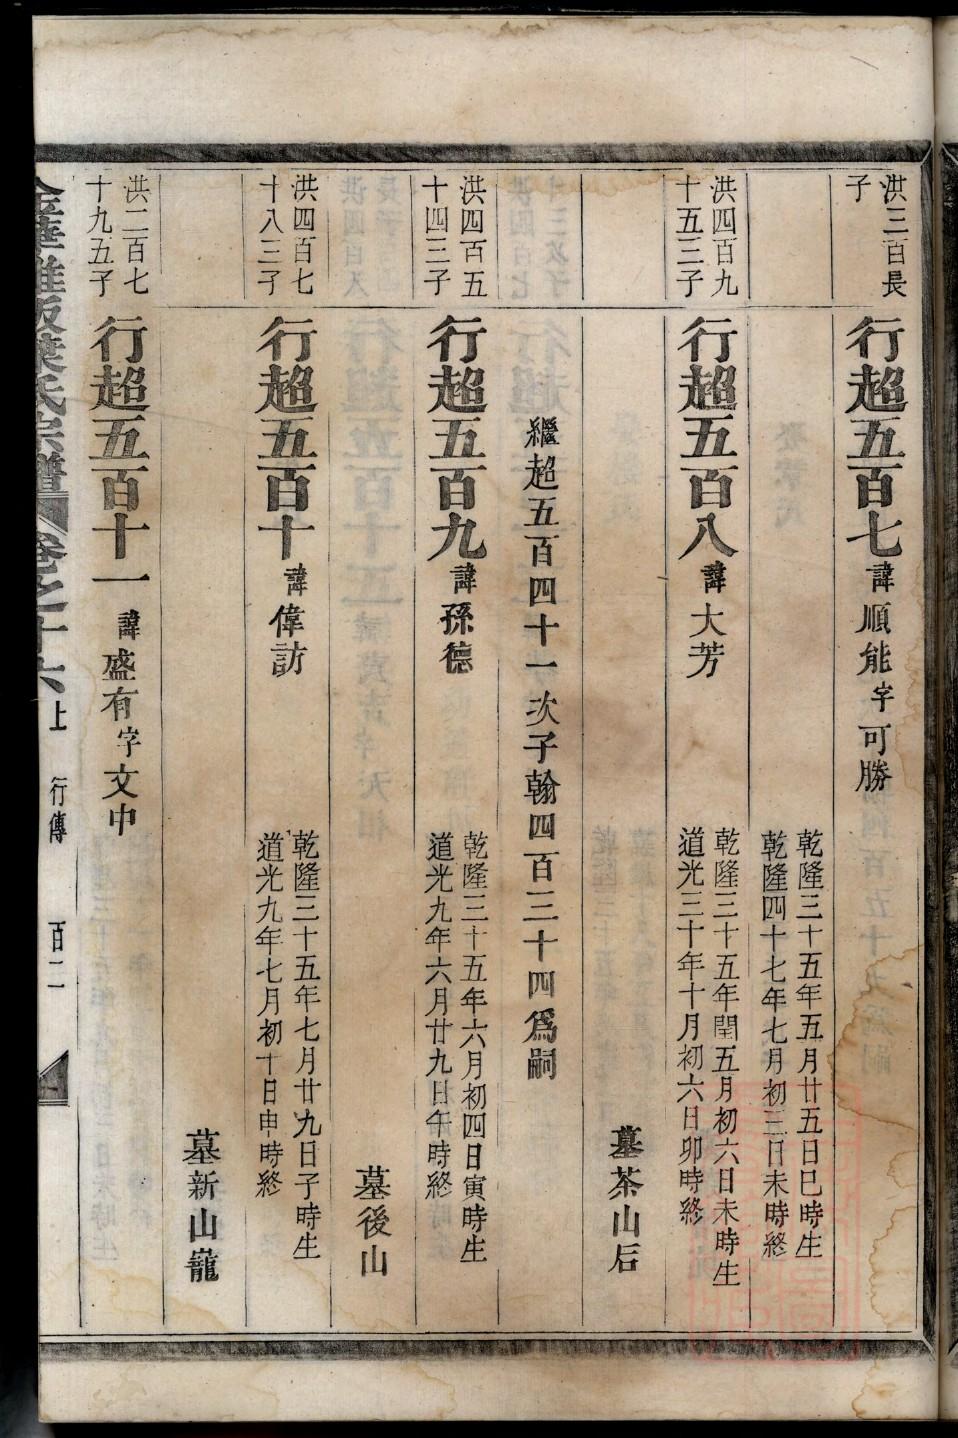 洪三百長
子
行超五百七 諱順能字可勝
乾隆三十五年五月廿五日巳時生
乾隆四十七年七月初三日未時終
洪四百九
十五三子
行超五百八 諱大芳
乾隆三十五年閏五月初六日未時生
道光三十年十月初六日卯時終
墓茶山后
繼超五百四十一次子翰四百三十四爲嗣
洪四百五
十四三子
行超五百九 諱孫德
乾隆三十五年六月初四日寅時生
道光九年六月廿九日午時終
墓後山
洪四百七
十八三子
行超五百十 諱偉訪
乾隆三十五年七月廿九日子時生
道光九年七月初十日申時終
墓新山龍
洪二百七
十九五子
行超五百十一 諱盛有字文中
葉氏宗譜 卷之十六上 行傳 百二